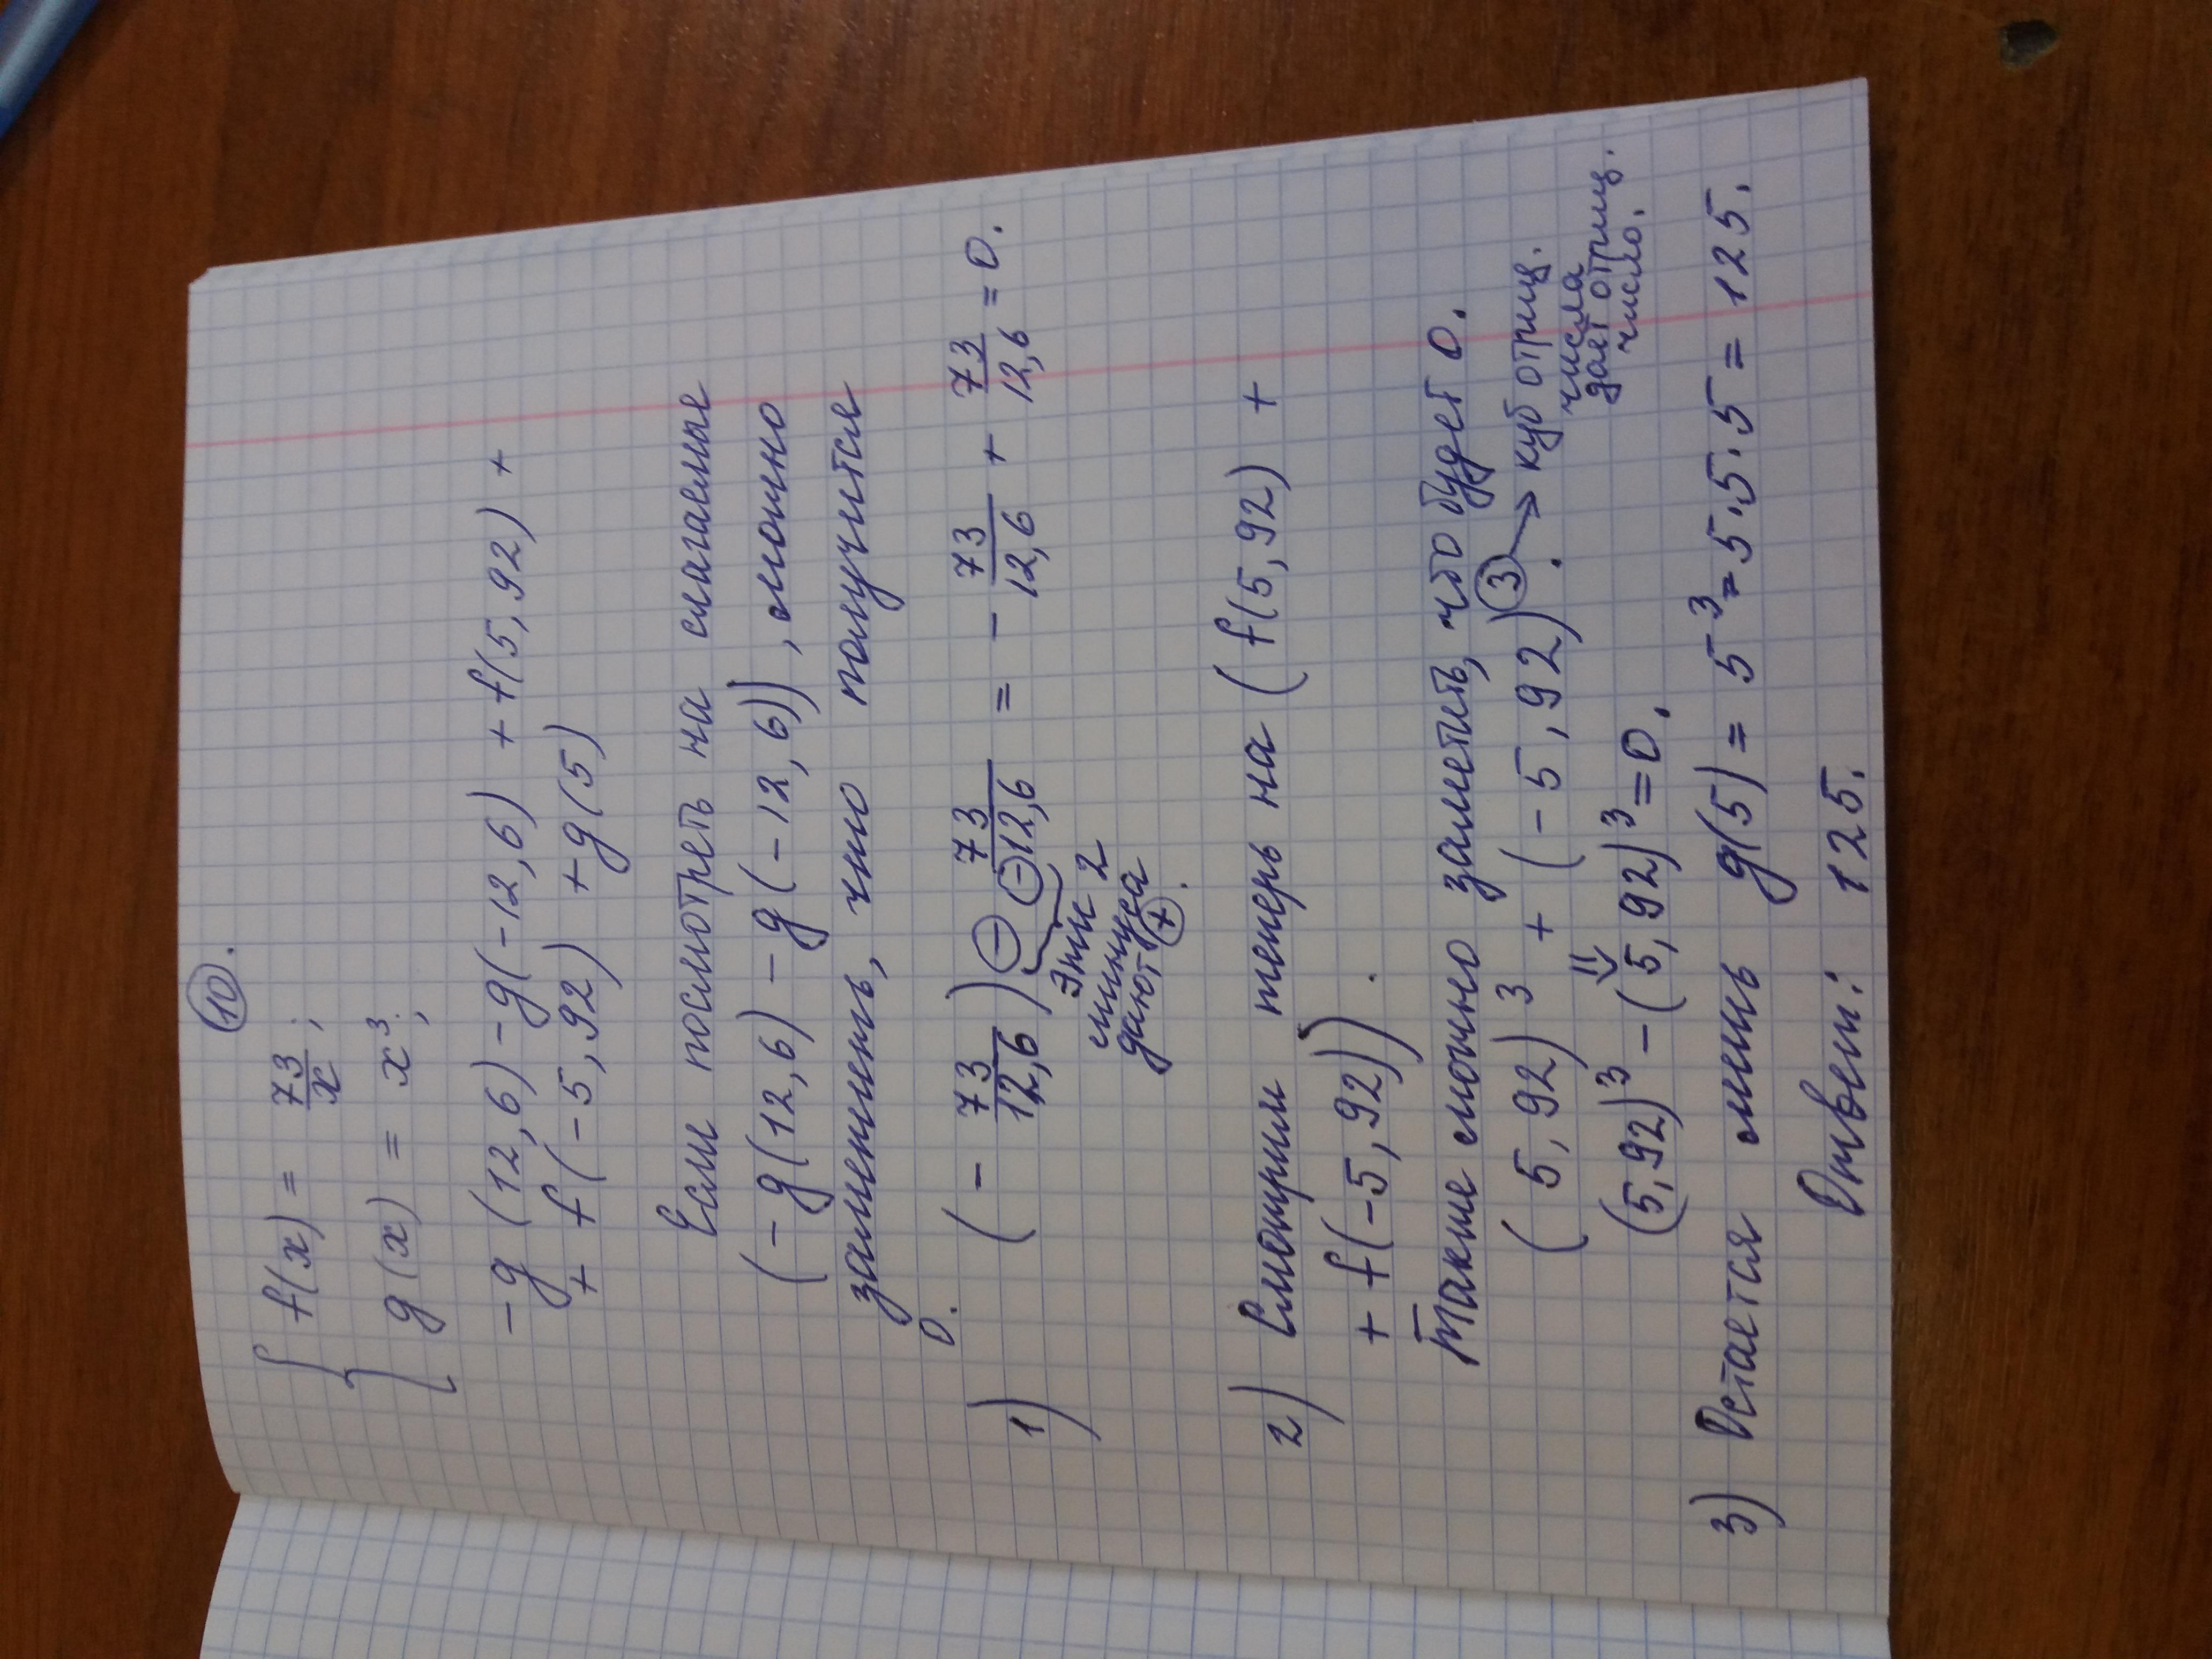 10.
f(x) = 73/x ;
g(x) = x³;
-g(12,6) - g(-12,6) + f(5,92) +
+ f(-5,92) + g(5)
Если посмотреть на слагаемые
(-g(12,6) - g(-12,6)), можно
заменить, что получится
0.
1) (- 73/12,6) - 73/-12,6 = - 73/12,6 + 73/12,6 = 0.
Эти 2
минуса
дают +.
2) Смотрим теперь на (f(5,92) +
+ f(-5,92)).
Также можно заметить, что будет 0.
(5,92)³ + (-5,92)³. → куб отриц.
числа
дает отриц.
число.
⇓
(5,92)³ - (5,92)³ = 0.
3) Остается лишь g(5) = 5³ = 5·5·5 = 125.
Ответ: 125.